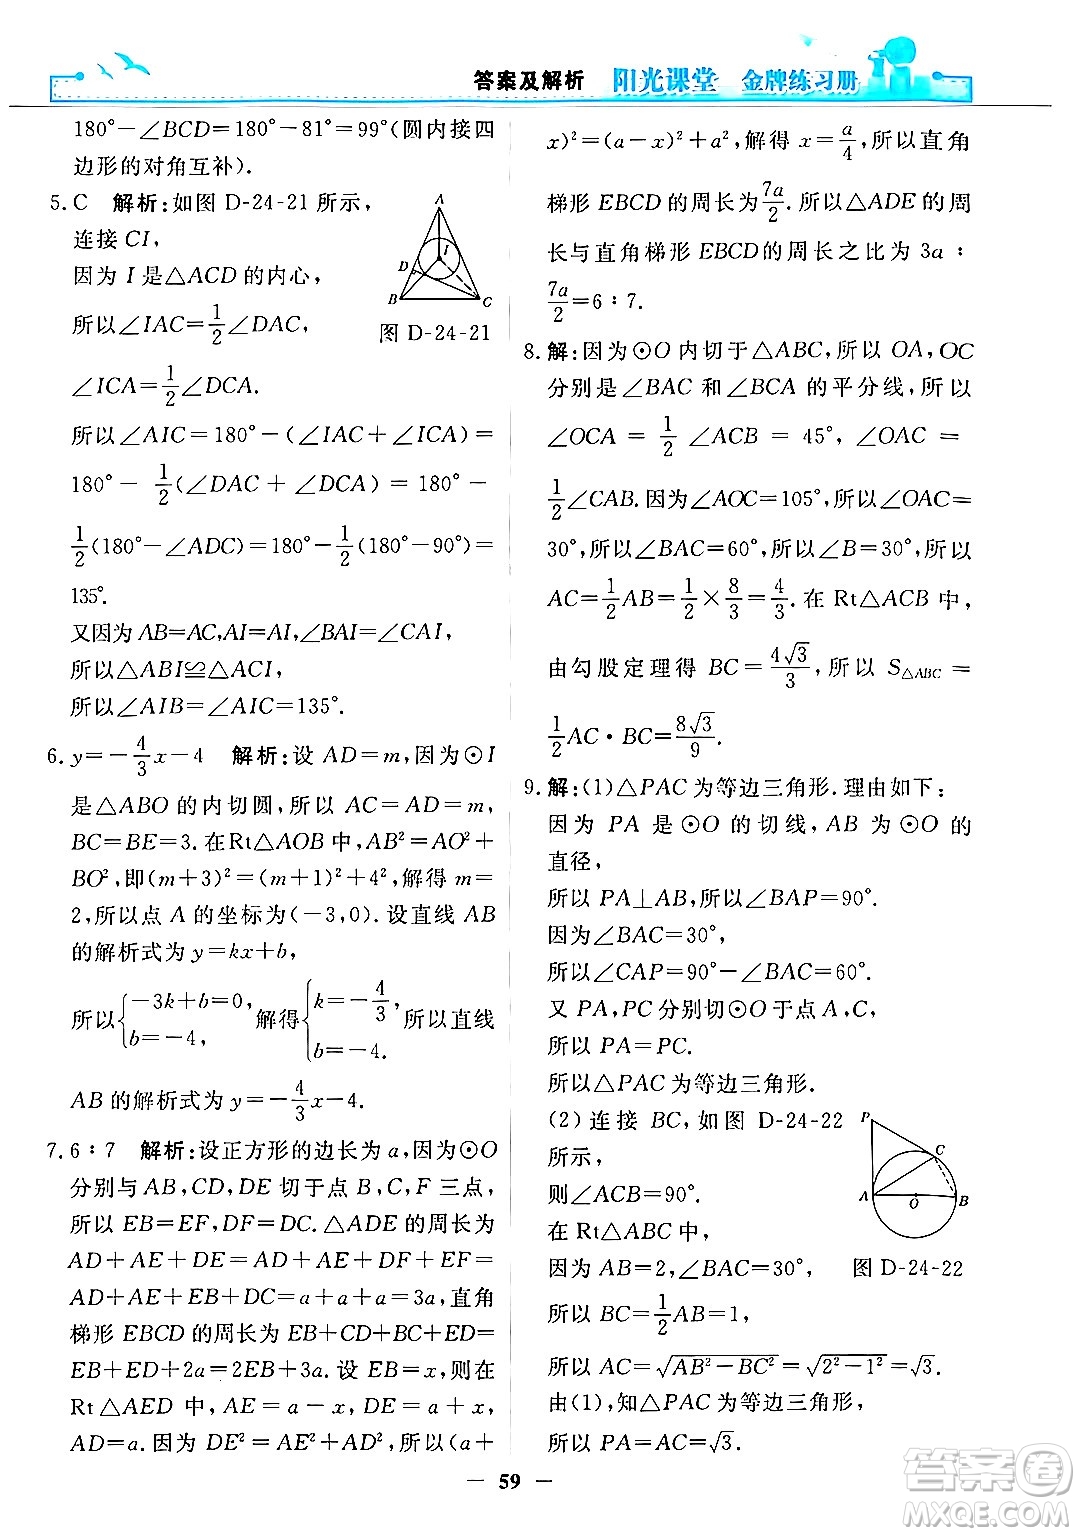 答案及解析 阳光课堂 金牌练习册
180°－∠BCD＝180°－81°＝99°(圆内接四
边形的对角互补).
5.C 解析:如图 D-24-21 所示,
连接 CI,
因为 I 是△ACD 的内心,
所以∠IAC＝1/2∠DAC,
∠ICA＝1/2∠DCA.
A
D
I
B
C
图 D-24-21
所以∠AIC＝180°－(∠IAC＋∠ICA)＝
180°－1/2(∠DAC＋∠DCA)＝180°－
1/2(180°－∠ADC)＝180°－1/2(180°－90°)＝
135°.
又因为AB=AC,AI=AI,∠BAI=∠CAI,
所以△ABI≌△ACI,
所以∠AIB＝∠AIC＝135°.
6.y＝－4/3x－4 解析:设 AD＝m,因为⊙I
是△ABO 的内切圆,所以 AC＝AD＝m,
BC＝BE＝3.在Rt△AOB 中,AB²＝AO²＋
BO²,即(m＋3)²＝(m＋1)²＋4²,解得 m＝
2,所以点 A 的坐标为(－3,0).设直线 AB
的解析式为 y＝kx＋b,
所以{－3k＋b＝0, b＝－4, 解得{k＝－4/3, b＝－4. 所以直线
AB 的解析式为 y＝－4/3x－4.
7.6∶7 解析:设正方形的边长为 a,因为⊙O
分别与 AB,CD,DE 切于点 B,C,F 三点,
所以 EB＝EF,DF＝DC.△ADE 的周长为
AD＋AE＋DE＝AD＋AE＋DF＋EF＝
AD＋AE＋EB＋DC＝a＋a＋a＝3a,直角
梯形 EBCD 的周长为 EB＋CD＋BC＋ED＝
EB＋ED＋2a＝2EB＋3a.设 EB＝x,则在
Rt△AED 中,AE＝a－x,DE＝a＋x,
AD＝a.因为 DE²＝AE²＋AD²,所以(a＋
x)²＝(a－x)²＋a²,解得 x＝a/4,所以直角
梯形 EBCD 的周长为7a/2.所以△ADE 的周
长与直角梯形 EBCD 的周长之比为 3a∶
7a/2＝6∶7.
8.解:因为⊙O 内切于△ABC,所以 OA,OC
分别是∠BAC 和∠BCA 的平分线,所以
∠OCA＝1/2∠ACB＝45°,∠OAC＝
1/2∠CAB.因为∠AOC=105°,所以∠OAC=
30°,所以∠BAC=60°,所以∠B=30°,所以
AC＝1/2AB＝1/2×8/3＝4/3.在 Rt△ACB 中,
由勾股定理得 BC＝4√3/3,所以 S△ABC＝
1/2AC·BC＝8√3/9.
9.解:(1)△PAC 为等边三角形.理由如下:
因为 PA 是⊙O 的切线,AB 为⊙O 的
直径,
所以 PA⊥AB,所以∠BAP＝90°.
因为∠BAC＝30°,
所以∠CAP＝90°－∠BAC＝60°.
又 PA,PC 分别切⊙O 于点 A,C,
所以 PA＝PC.
所以△PAC 为等边三角形.
(2)连接 BC,如图 D-24-22
所示,
则∠ACB＝90°.
在 Rt△ABC 中,
因为 AB＝2,∠BAC＝30°,
P
C
A
O
B
图 D-24-22
所以 BC＝1/2AB＝1,
所以 AC＝√(AB²－BC²)＝√(2²－1²)＝√3.
由(1),知△PAC 为等边三角形,
所以 PA＝AC＝√3.
— 59 —
答案圈
MXQE.COM